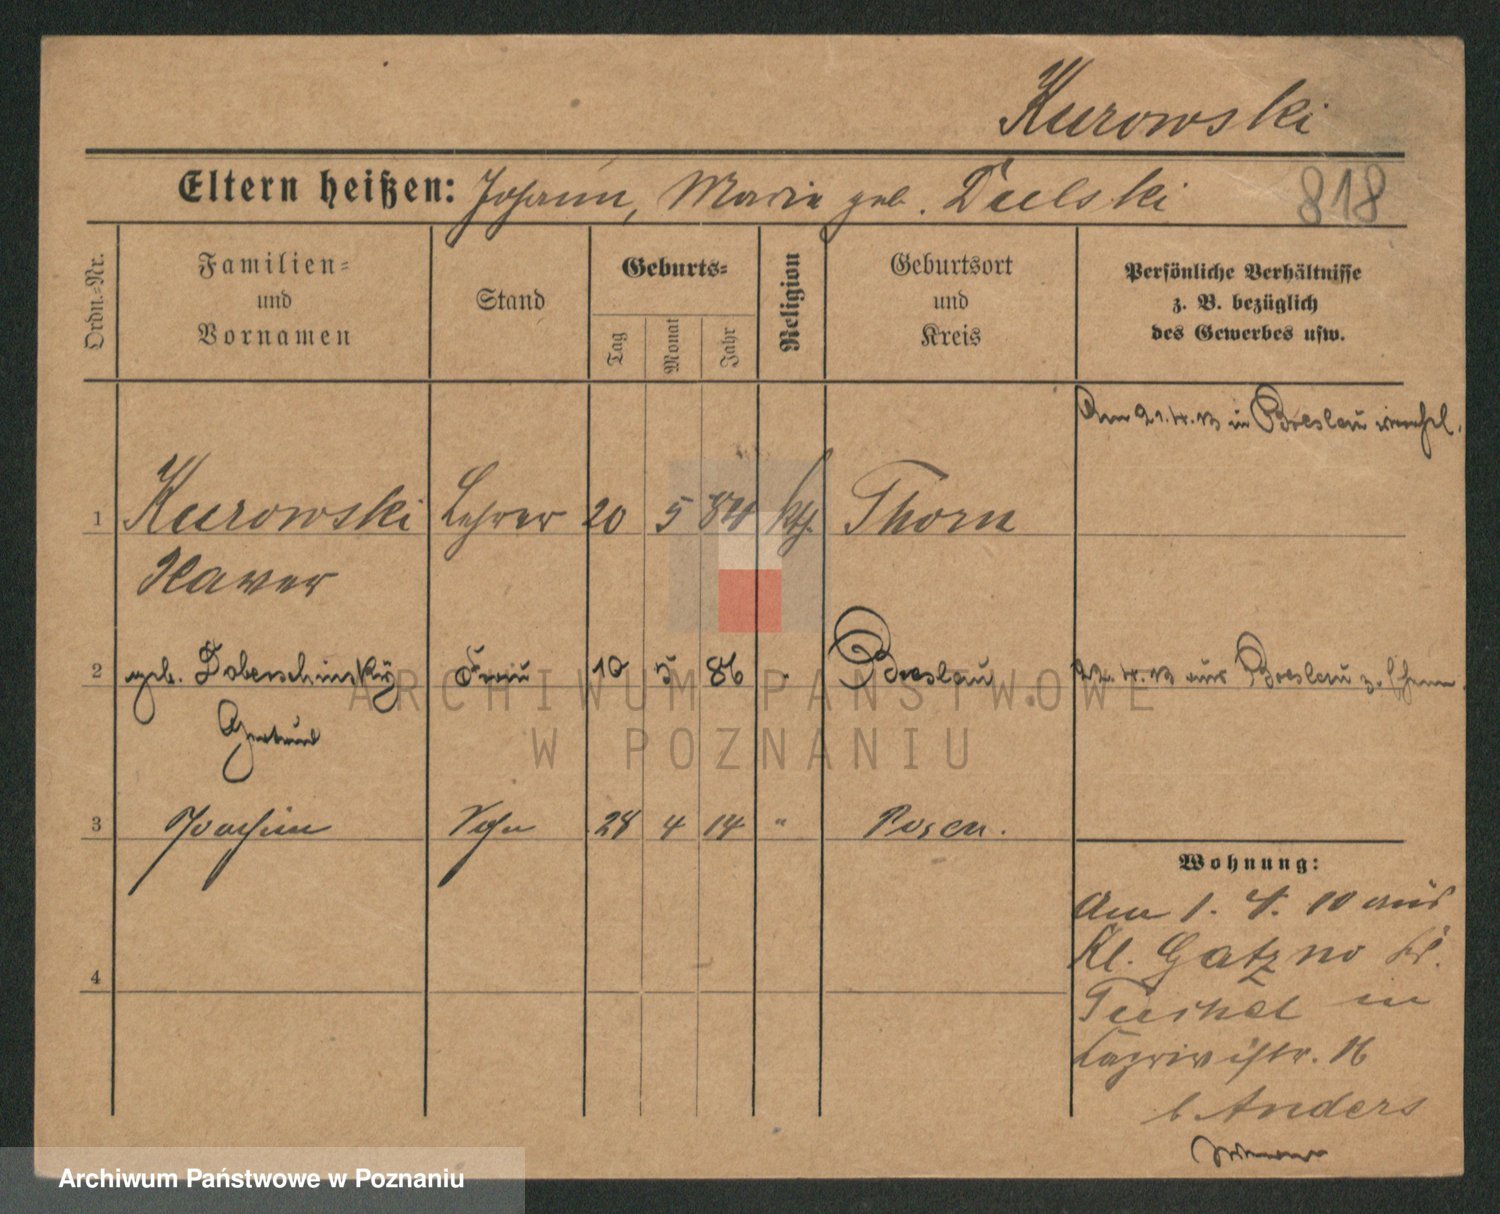 Kurowski
Eltern heißen: Johann, Marie geb. Dulski 818
Ordn.-Nr.
Familien-
und
Vornamen
Stand
Geburts-
Tag
Monat
Jahr
Religion
Geburtsort
und
Kreis
Persönliche Verhältnisse
z. B. bezüglich
des Gewerbes usw.
Am 21.4.13 in Breslau
1 Kurowski Lehrer 20 5 84 kth. Thorn
Xaver
2 geb. Doberschinsky Frau 10 5 86 " Breslau 22.4.13 aus Breslau z.
Gertrud
3 Joachim Sohn 28 4 14 " Posen.
Wohnung:
Am 1. 4. 10 aus
Kl. Gatzno Kr.
Tuchel in
16
b. Anders
4
ARCHIWUM PAŃSTWOWE
W POZNANIU
Archiwum Państwowe w Poznaniu